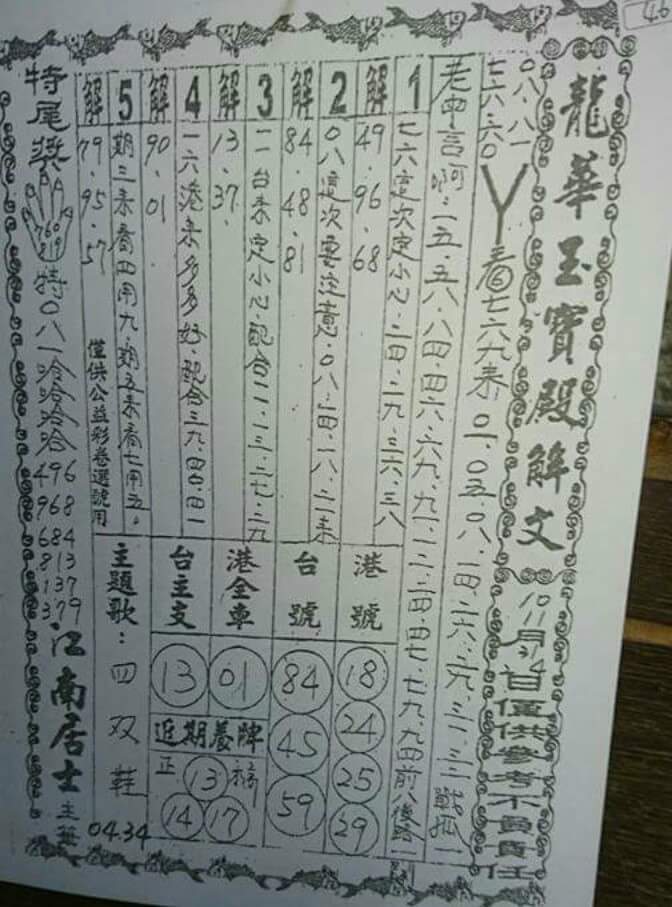 4.6
龍華玉寶殿解文
10/11月/14日僅供參考不負責任
〇八.八一
七六.六〇
丫看七六九來.〇一.〇五.〇八.一四.二六.二九.三一.三三
老中言啊.一五.五八.八四.四六.六九.九一.一二.二四.四七.七九.九四前八後
1
七六這次定小心.二四.二九.三六.三八
解
49.96.68
2
〇八這次要注意.〇八.一四.一八.二一來
解
84.48.81
3
一一台來定小心.配合一一.一三.二七.二九
解
13.37.
4
一六港來多多好.配合三九.四〇.四一
解
90.01
5
期三來看四用九.期五來看七用五。
解
79.95.57
僅供公益彩卷選號用
港號
18
24
25
29
台號
84
45
59
港全車
01
台主支
13
近期養牌
正
13
14
17
主題歌：四双鞋
04.34
特尾獎
760
819
特〇八一哈哈哈哈
496
968
684
813
137
379
江南居士主筆